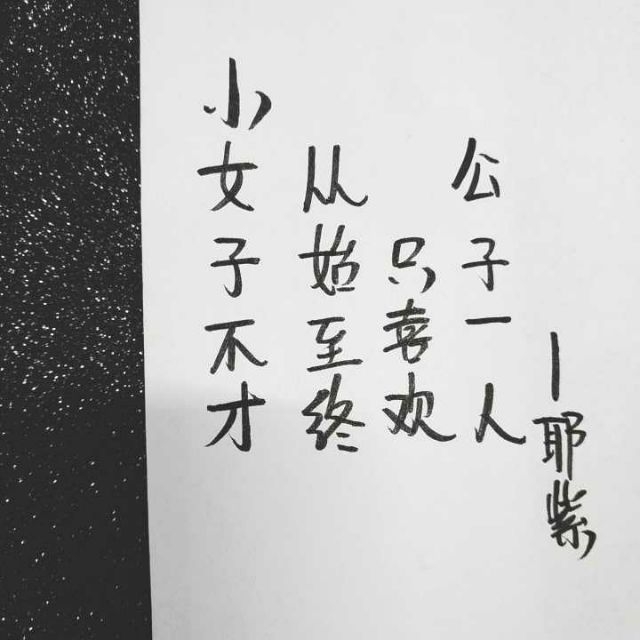 小女子不才
从始至终
只喜欢
公子一人
—耶紫